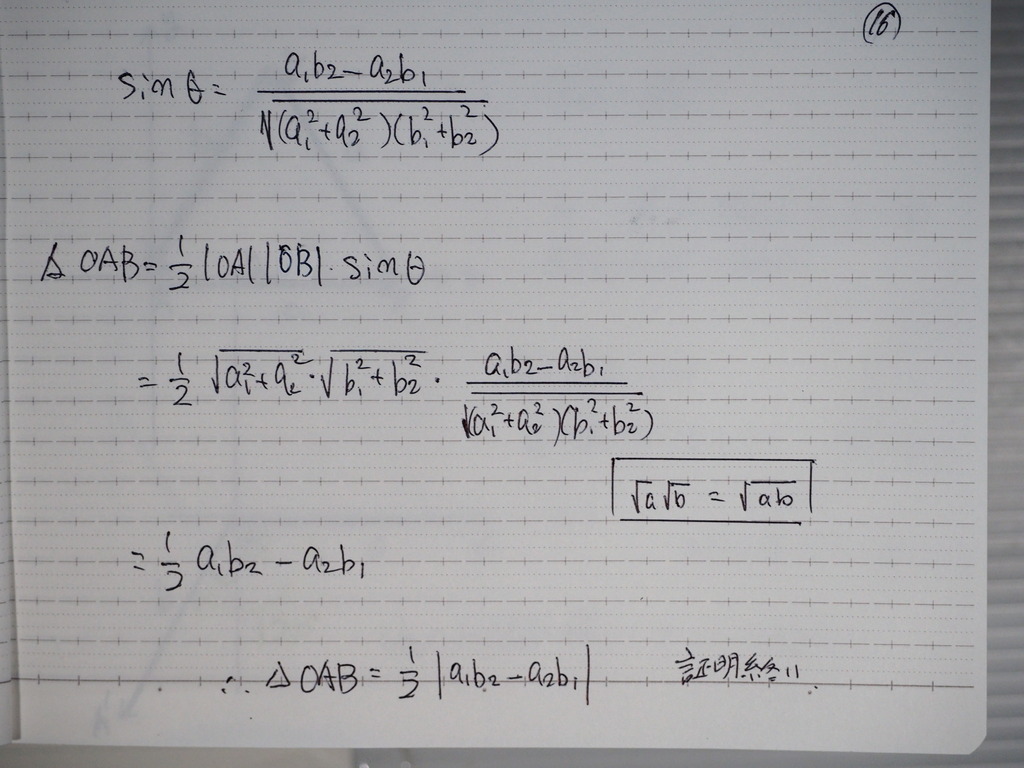 ⑯
sin θ = (a₁b₂ − a₂b₁) / √((a₁²+a₂²)(b₁²+b₂²))
△ OAB = 1/2 |OA| |OB| · sin θ
= 1/2 √(a₁²+a₂²) · √(b₁²+b₂²) · (a₁b₂ − a₂b₁) / √((a₁²+a₂²)(b₁²+b₂²))
√a √b = √ab
= 1/2 a₁b₂ − a₂b₁
∴ △ OAB = 1/2 |a₁b₂ − a₂b₁| 証明終〃